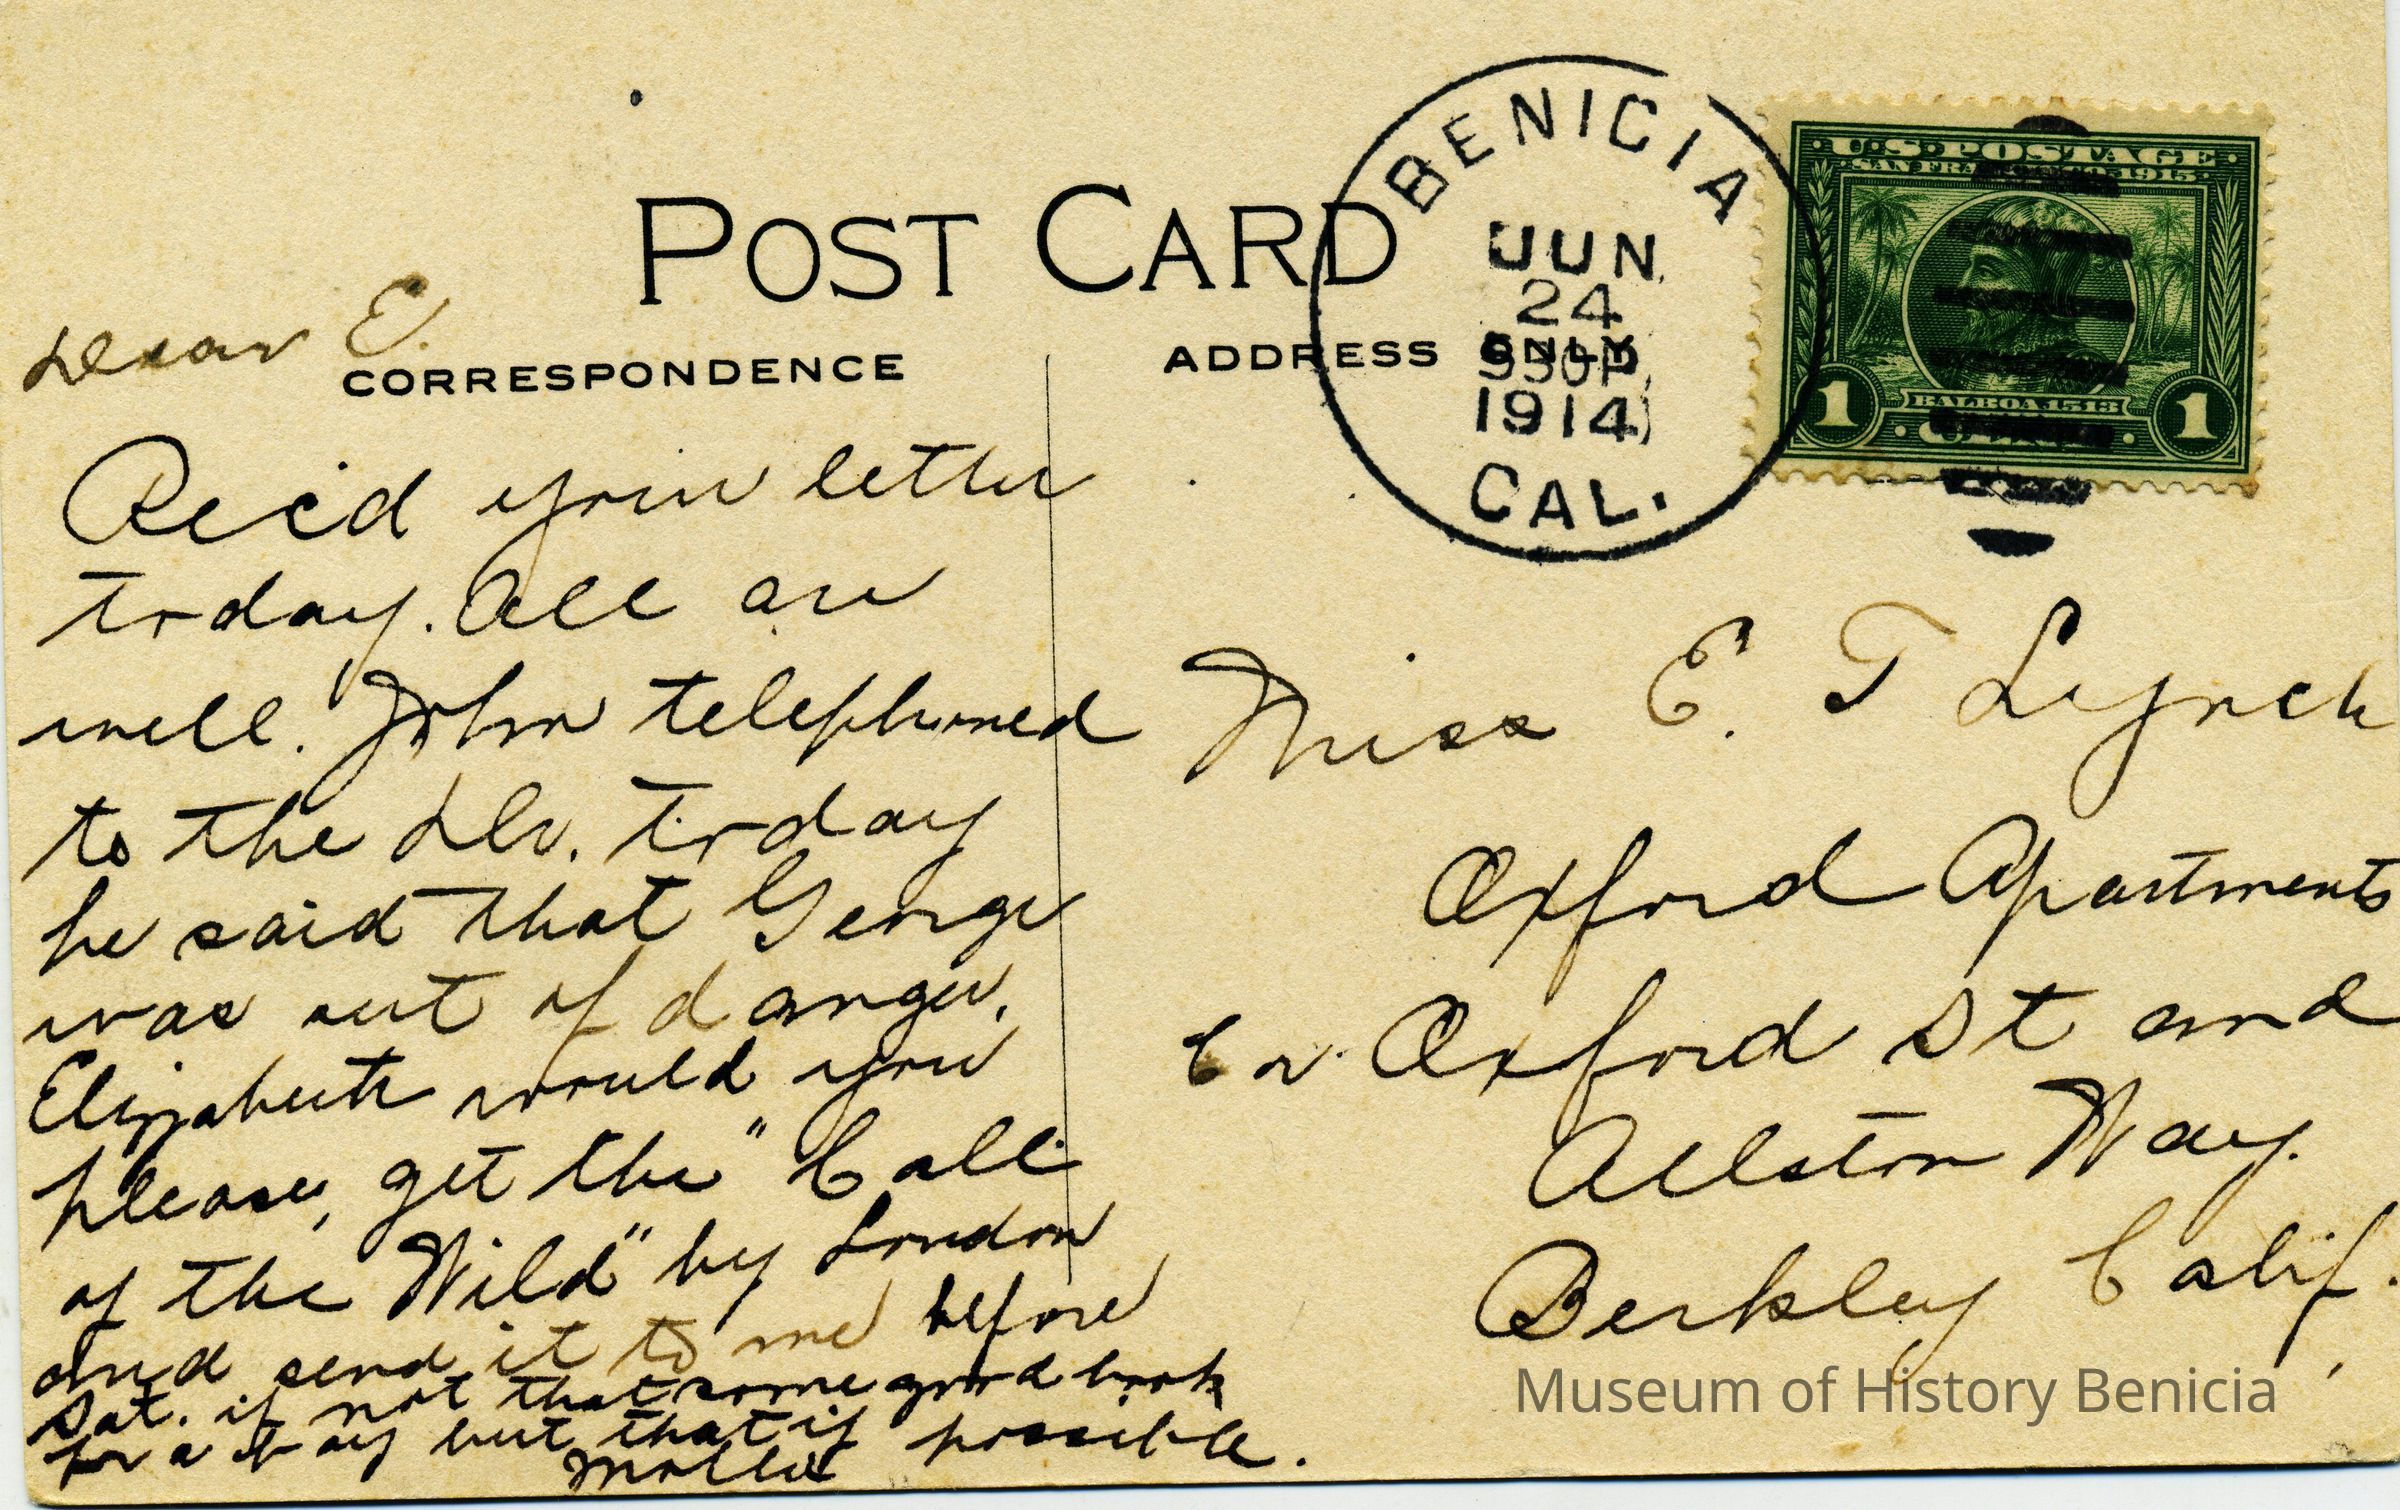 POST CARD
CORRESPONDENCE
ADDRESS ONLY
BENICIA
JUN
24
1914
CAL.
U.S. POSTAGE
SAN FRANCISCO 1915
BALBOA 1513
1 1
Dear E.
Rec'd your letter
today. All are
well. John telephoned
to the Dr. today
he said that George
was out of danger.
Elizabeth would you
please, get the "Call
of the Wild" by London
and send it to me before
Sat. if not that some good book
for a boy but that if possible.
Mollie
Miss E. T Lynch
Oxford Apartments
Cor. Oxford St and
Allston Way.
Berkley Calif.
Museum of History Benicia